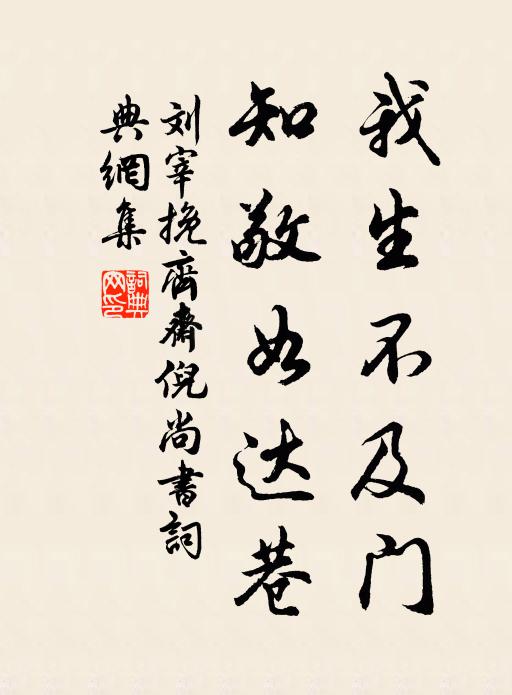 我生不及门
知敬如达巷
刘宰挽齐斋倪尚書詞
典網集
詞典网印